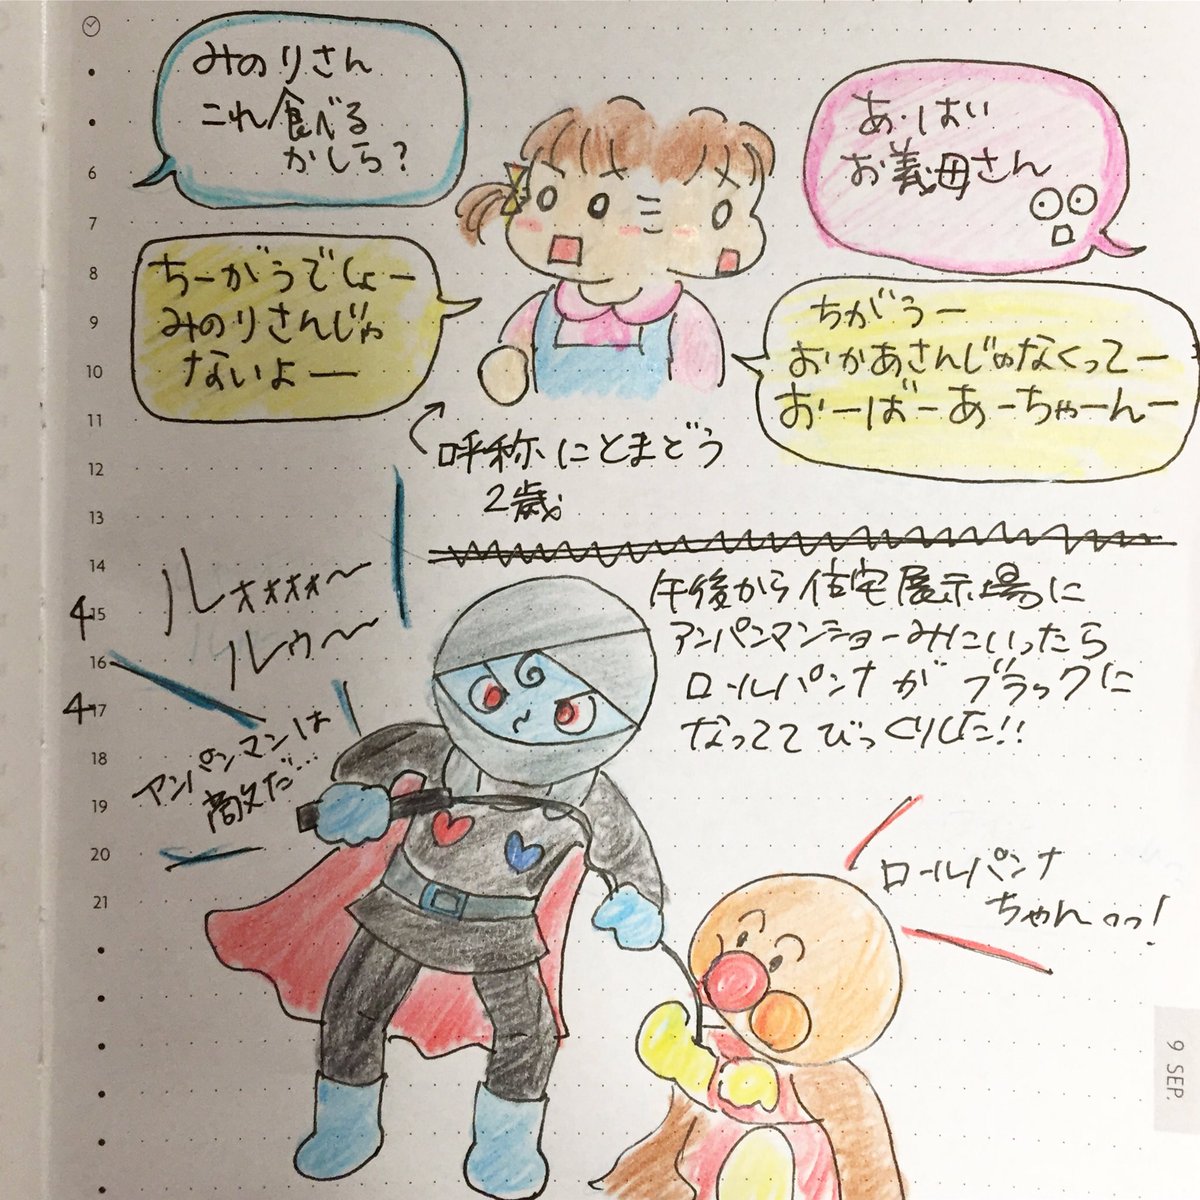 みのりさん
これ食べる
かしら?
あ、はい
お義母さん
ちーがうでしょー
みのりさんじゃ
ないよー
ちがうー
おかあさんじゃなくってー
おーばーあーちゃーんー
呼称にとまどう
2歳。
午後から住宅展示場に
アンパンマンショーみにいったら
ロールパンナがブラックに
なっててびっくりした!!
ルォォォォ〜
ルゥ〜
アンパンマンは
敵だ…
ロールパンナ
ちゃんっっ!
6
7
8
9
10
11
12
13
14
4
15
16
4
17
18
19
20
21
9 SEP.